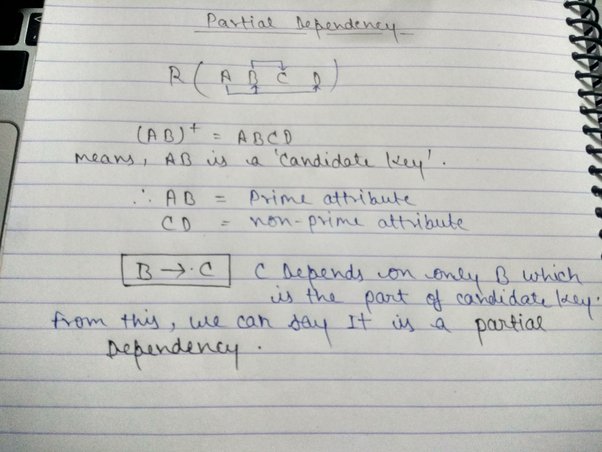 Partial Dependency
R ( A B C D )
(AB)+ = ABCD
means, AB is a 'candidate key'.
∴ AB = Prime attribute
CD = non-prime attribute
B → C C Depends on only B which
is the part of candidate key.
from this, we can say It is a partial
Dependency.